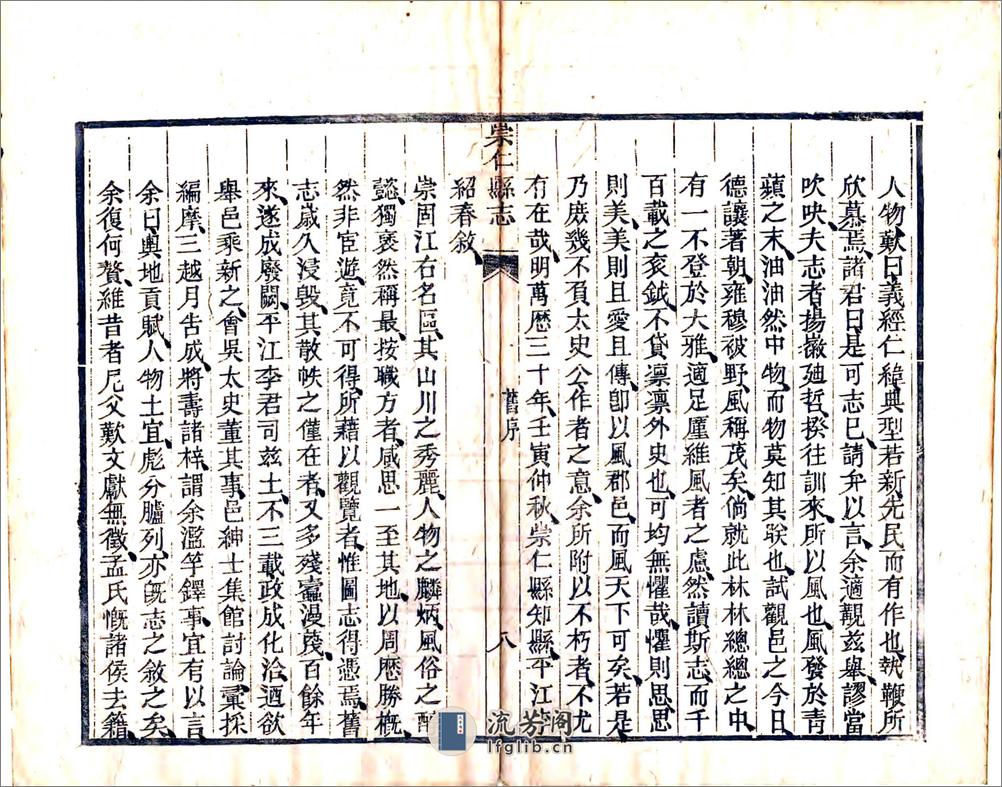 人物歎曰義經仁緯典型若新先民而有作也執鞭所
欣慕焉諸君曰是可志已請弁以言余適觀茲舉謬當
吹吷夫志者揚徽廸哲揆往訓來所以風也風發於靑
蘋之末油油然中物而物莫知其朕也試觀邑之今日
德讓著朝雍穆被野風稱茂矣倘就此林林總總之中
有一不登於大雅適足廑維風者之慮然讀斯志而千
百載之袞鉞不貸凛凛外史也可均無懼哉懼則思思
則美美則且愛且傳卽以風郡邑而風天下可矣若是
乃庶幾不負太史公作者之意余所附以不朽者不尤
有在哉明萬曆三十年壬寅仲秋崇仁縣知縣平江
紹春敘
崇仁縣志
舊序
八
崇固江右名區其山川之秀麗人物之麟炳風俗之醇
懿獨褒然稱最按職方者咸思一至其地以周歷勝槪
然非宦遊竟不可得所藉以觀覽者惟圖志得憑焉舊
志歲久浸毀其散帙之僅在者又多殘蠹漫漶百餘年
來遂成廢闕平江李君司茲土不三載政成化洽迺欲
舉邑乘新之會吳太史董其事邑紳士集館討論彙採
編摩三越月告成將壽諸梓謂余濫竽鐸事宜有以言
余曰輿地貢賦人物土宜彪分臚列亦旣志之敘之矣
余復何贅維昔者尼父歎文獻無徵孟氏慨諸侯去籍
流芳阁
lfglib.cn